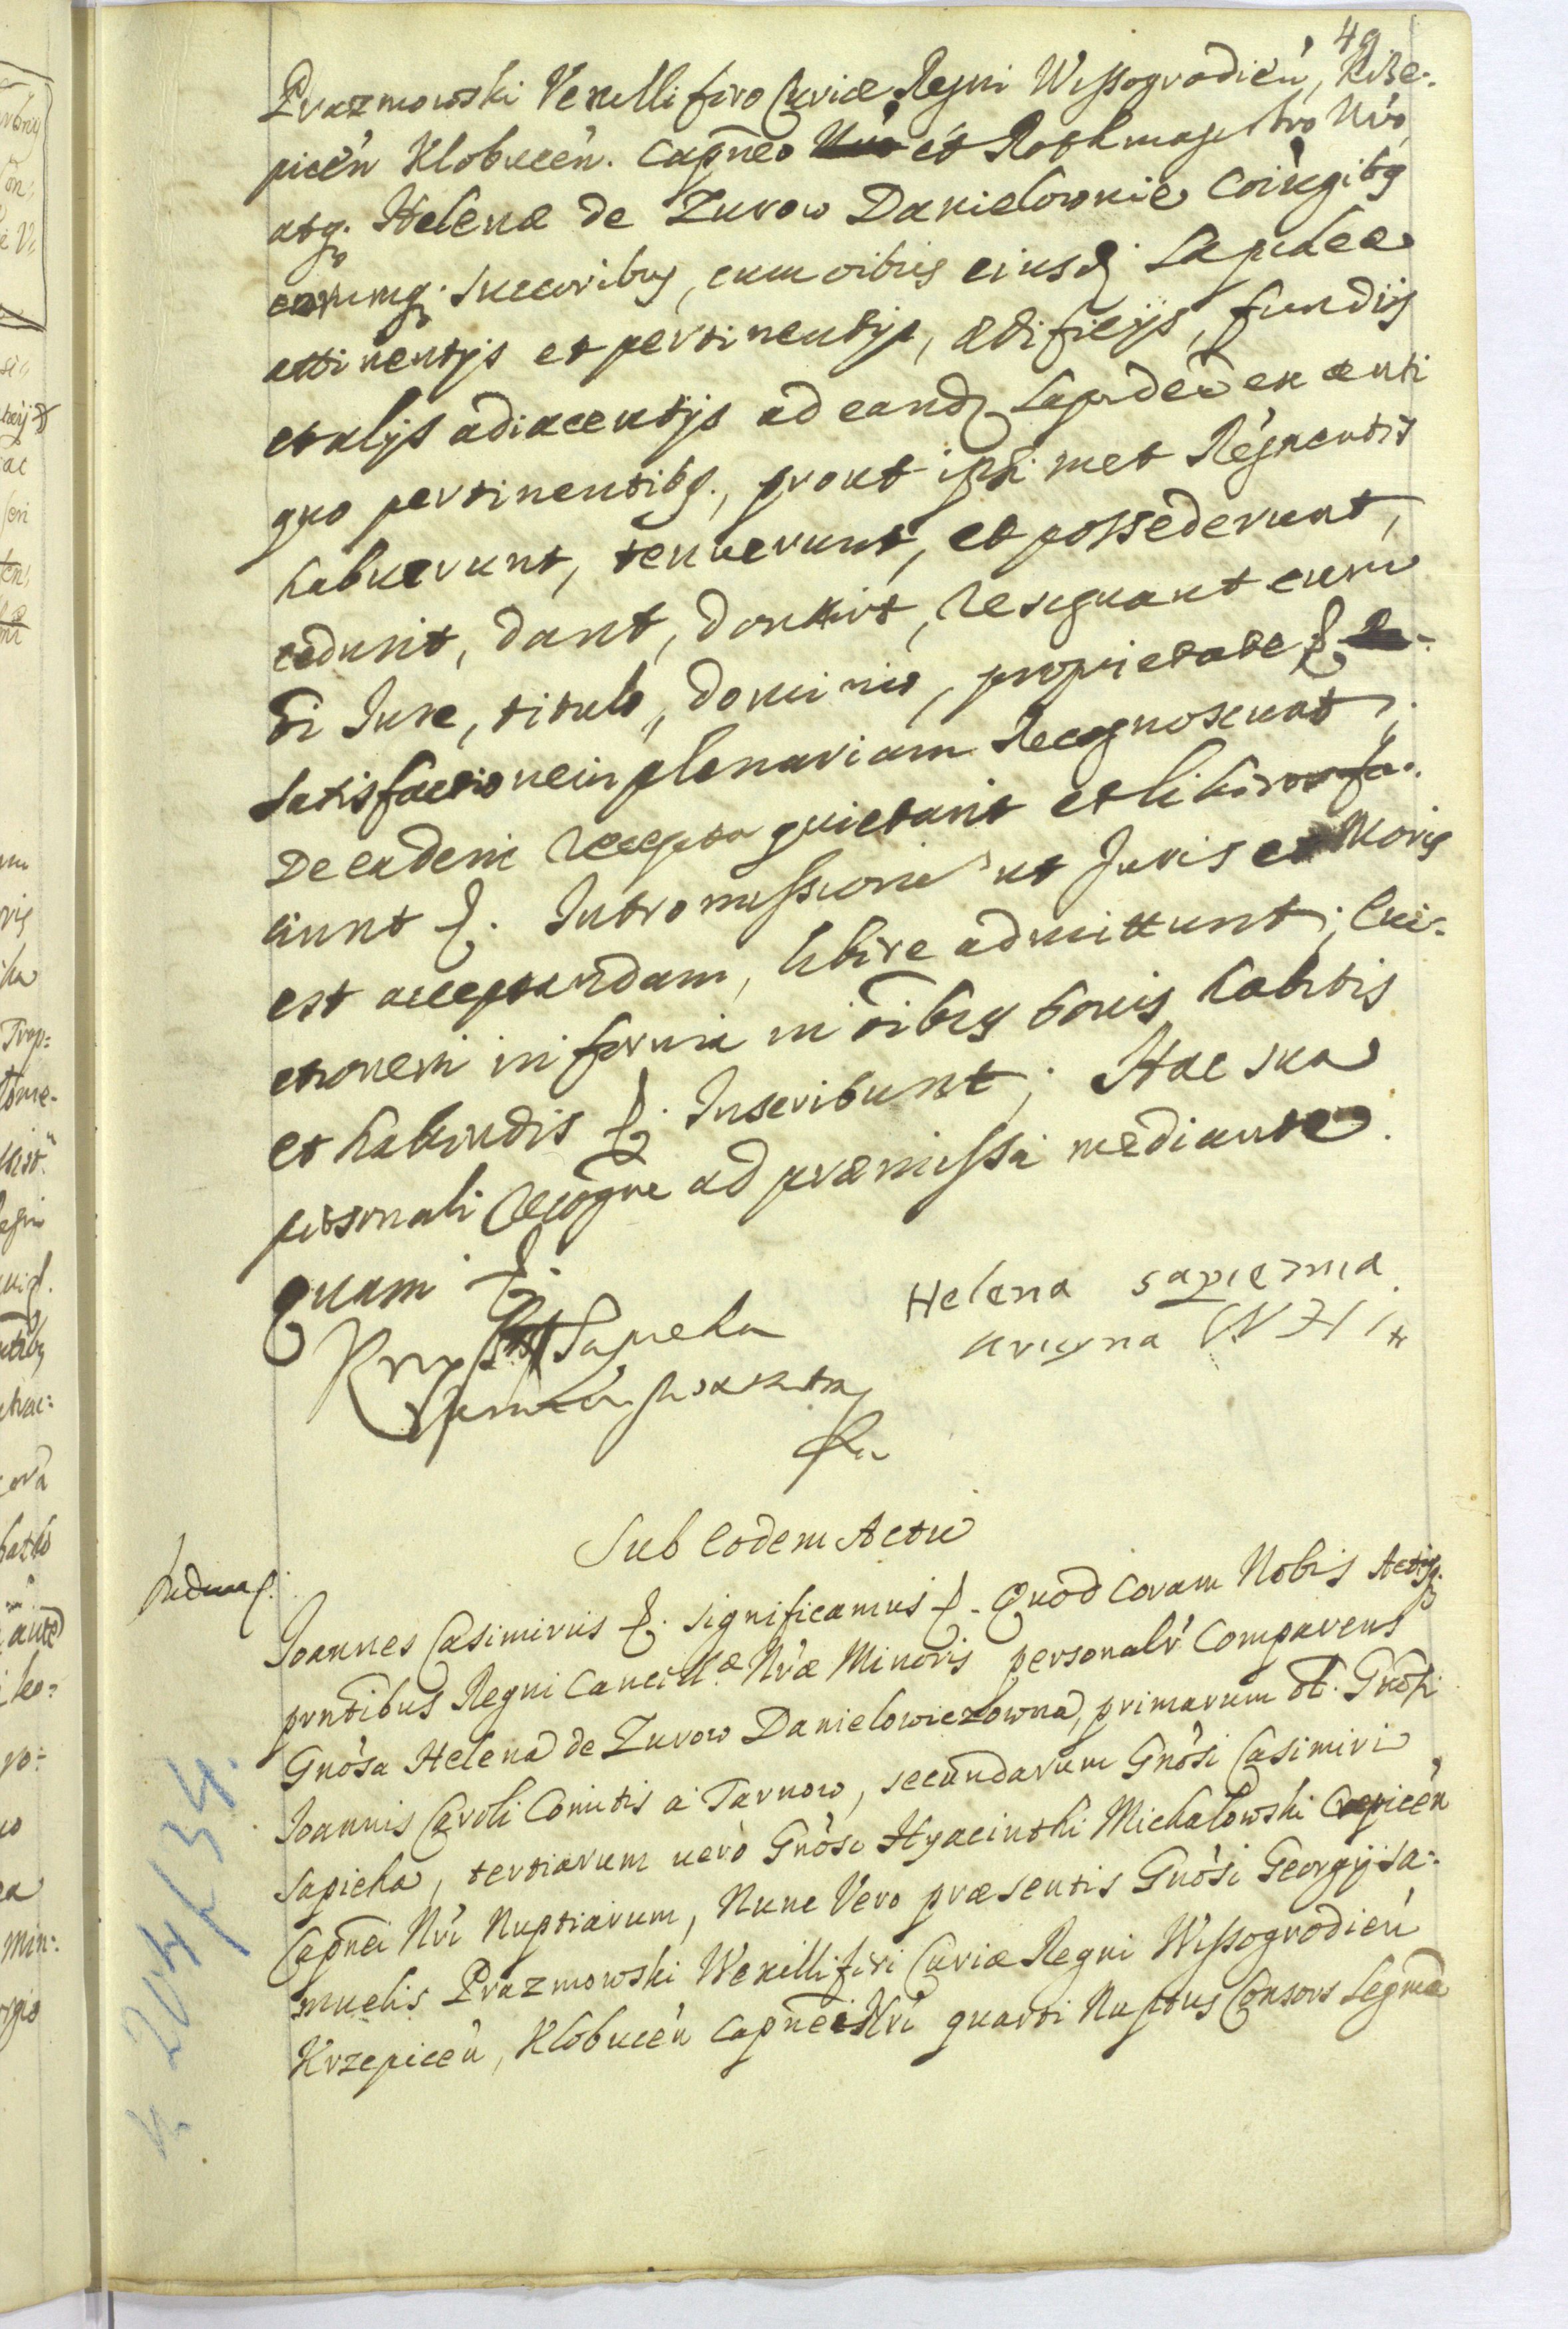 49
Prazmowski Vexillifero Curiæ Regni Wyssogrodień, Krze-
piceń Klobuceń. Capneo et Rothmagistro Nro
atq. Helenæ de Zurow Danielownie Coniugibg
eorumq. Succoribus, cum oibus eiusd. Lapideæ
attinentÿs et pertinentÿs, ædificÿs, fundis
et alÿs adiacentÿs ad eand. Lapideã ex anti
quo pertinentibg., prout ipsimet Rēgnentes
habuerunt, tenuerunt, et possederunt,
cedunt, dant, donant, resignant cum
Iure, titulo, dominio, proprietate &.
Satisfactionem plenariam Recognoscunt;
De eadem recepta quietant et liberos fa-
ciunt &. Intromissione ut Juris et Moris
est acceptandam, libere admittunt; Evi-
ctionem in forma in oibus bonis habitis
et habendis &. Inscribunt; Hac sua
personali recogne ad præmissa mediante.
quam &.
Helena sapiezyna
Sapieha
Sub Eodem Actu
Joannes Casimirus &. Significamus &. Quod Coram Nobis Actisq.
prntibus Regni Cancill.æ Nræ Minoris personalr Comparens
Gnosa Helena de Zurow Danielowiczowna, primarum ol. Gnosi
Joannis Caroli Comitis a Tarnow, secundarum Gnosi Casimiri
Sapieha, tertiarum vero Gnosi Hyacinthi Michalowski Crepicen
Capnei Nri Nuptiarum, Nunc Vero præsentis Gnosi Georgÿ Sa-
muelis Prazmowski Wexilliferi Curiæ Regni Wyssogrodień
Krzepiceń, Klobuceń Capnei Nri quarti Nuptus Consors Legma
K 204/34.